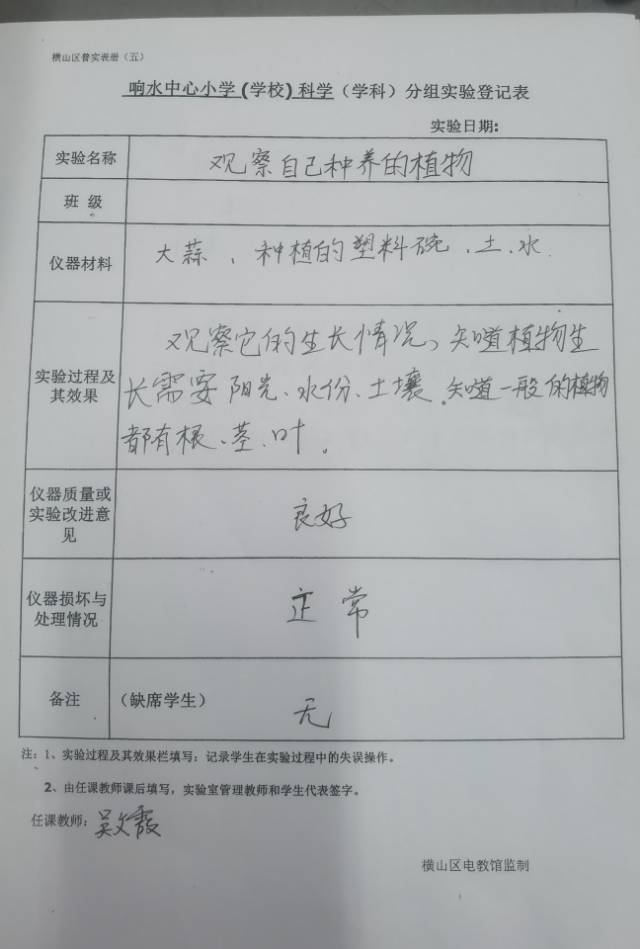 横山区普实表册（五）
响水中心小学(学校)科学（学科）分组实验登记表
实验日期:
实验名称 观察自己种养的植物
班 级
仪器材料 大蒜、种植的塑料碗、土、水
观察它的生长情况、知道植物生
实验过程及 长需要阳光、水份、土壤、知道一般的植物
其效果 都有根、茎、叶。
仪器质量或
实验改进意 良好
见
仪器损坏与 正常
处理情况
备注 （缺席学生） 无
注：1、实验过程及其效果栏填写：记录学生在实验过程中的失误操作。
2、由任课教师课后填写，实验室管理教师和学生代表签字。
任课教师：吴文霞
横山区电教馆监制